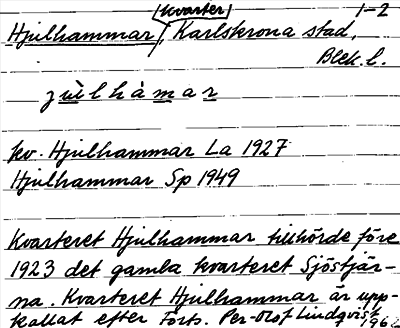 kvarter 1-2
Hjulhammar, Karlskrona stad,
Blek. l.
jùlhàmar
kv. Hjulhammar La 1927
Hjulhammar Sp 1949
Kvarteret Hjulhammar tillhörde före
1923 det gamla kvarteret Sjöstjär-
na. Kvarteret Hjulhammar är upp-
kallat efter Forts. Per-Olof Lindqvist 1962